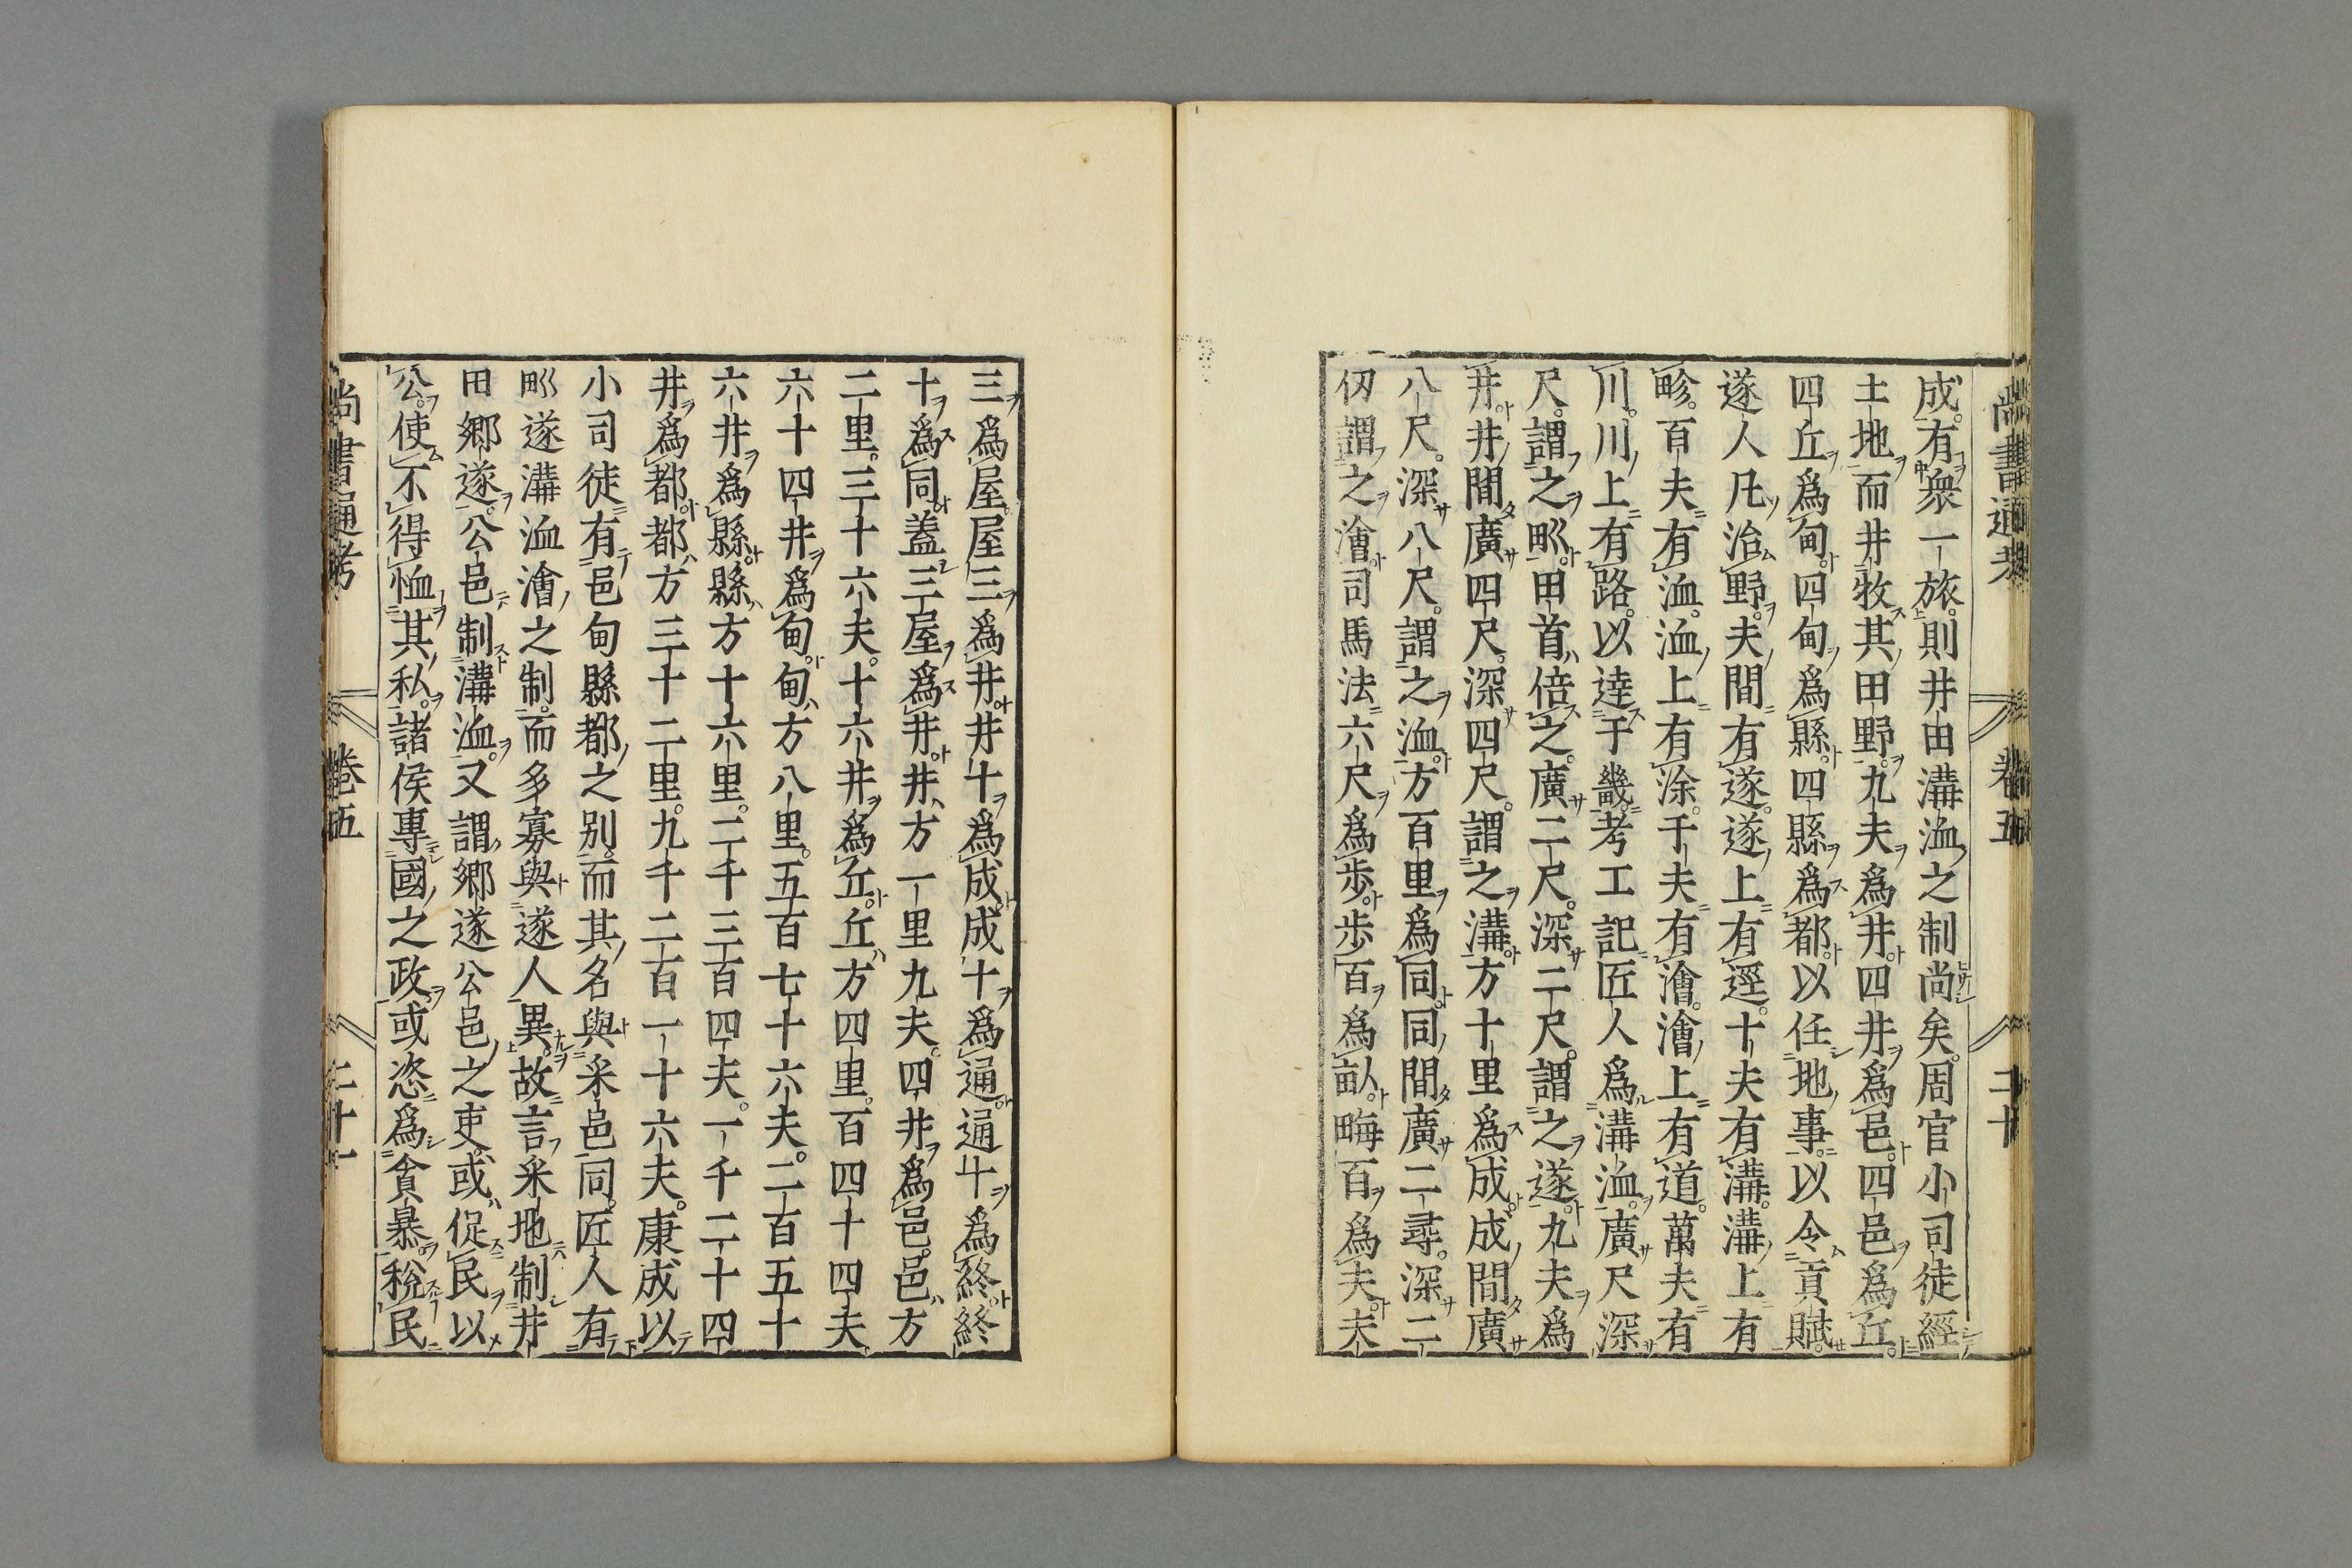 尚書通考 卷五 二十
成。有衆一旅。則井由溝洫之制尚矣。周官小司徒經
土地而井牧其田野。九夫爲井。四井爲邑。四邑爲丘。
四丘爲甸。四甸爲縣。四縣爲都。以任地事。以令貢賦。
遂人凡治野。夫間有遂。遂上有逕。十夫有溝。溝上有
畛。百夫有洫。洫上有涂。千夫有澮。澮上有道。萬夫有
川。川上有路。以達于畿。考工記匠人爲溝洫。廣尺深
尺。謂之𤰕。田首倍之。廣二尺。深二尺。謂之遂。九夫爲
井。井間廣四尺。深四尺。謂之溝。方十里爲成。成間廣
八尺。深八尺。謂之洫。方百里爲同。同間廣二尋。深二
仞謂之澮。司馬法六尺爲步。步百爲畝。畮百爲夫。夫
三爲屋。屋三爲井。井十爲成。成十爲通。通十爲終。終
十爲同。蓋三屋爲井。井方一里九夫。四井爲邑。邑方
二里。三十六夫。十六井爲丘。丘方四里。百四十四夫
六十四井爲甸。甸方八里。五百七十六夫。二百五十
六井爲縣。縣方十六里。二千三百四夫。一千二十四
井爲都。都方三十二里。九千二百一十六夫。康成以
小司徒有邑甸縣都之别。而其名與采邑同。匠人有
𤰕遂溝洫澮之制。而多寡與遂人異。故言采地制井
田鄉遂。公邑制溝洫。又謂鄉遂公邑之吏。或促民以
公。使不得恤其私。諸侯專國之政。或恣爲貪暴。稅民
尚書通考 卷五 二十一